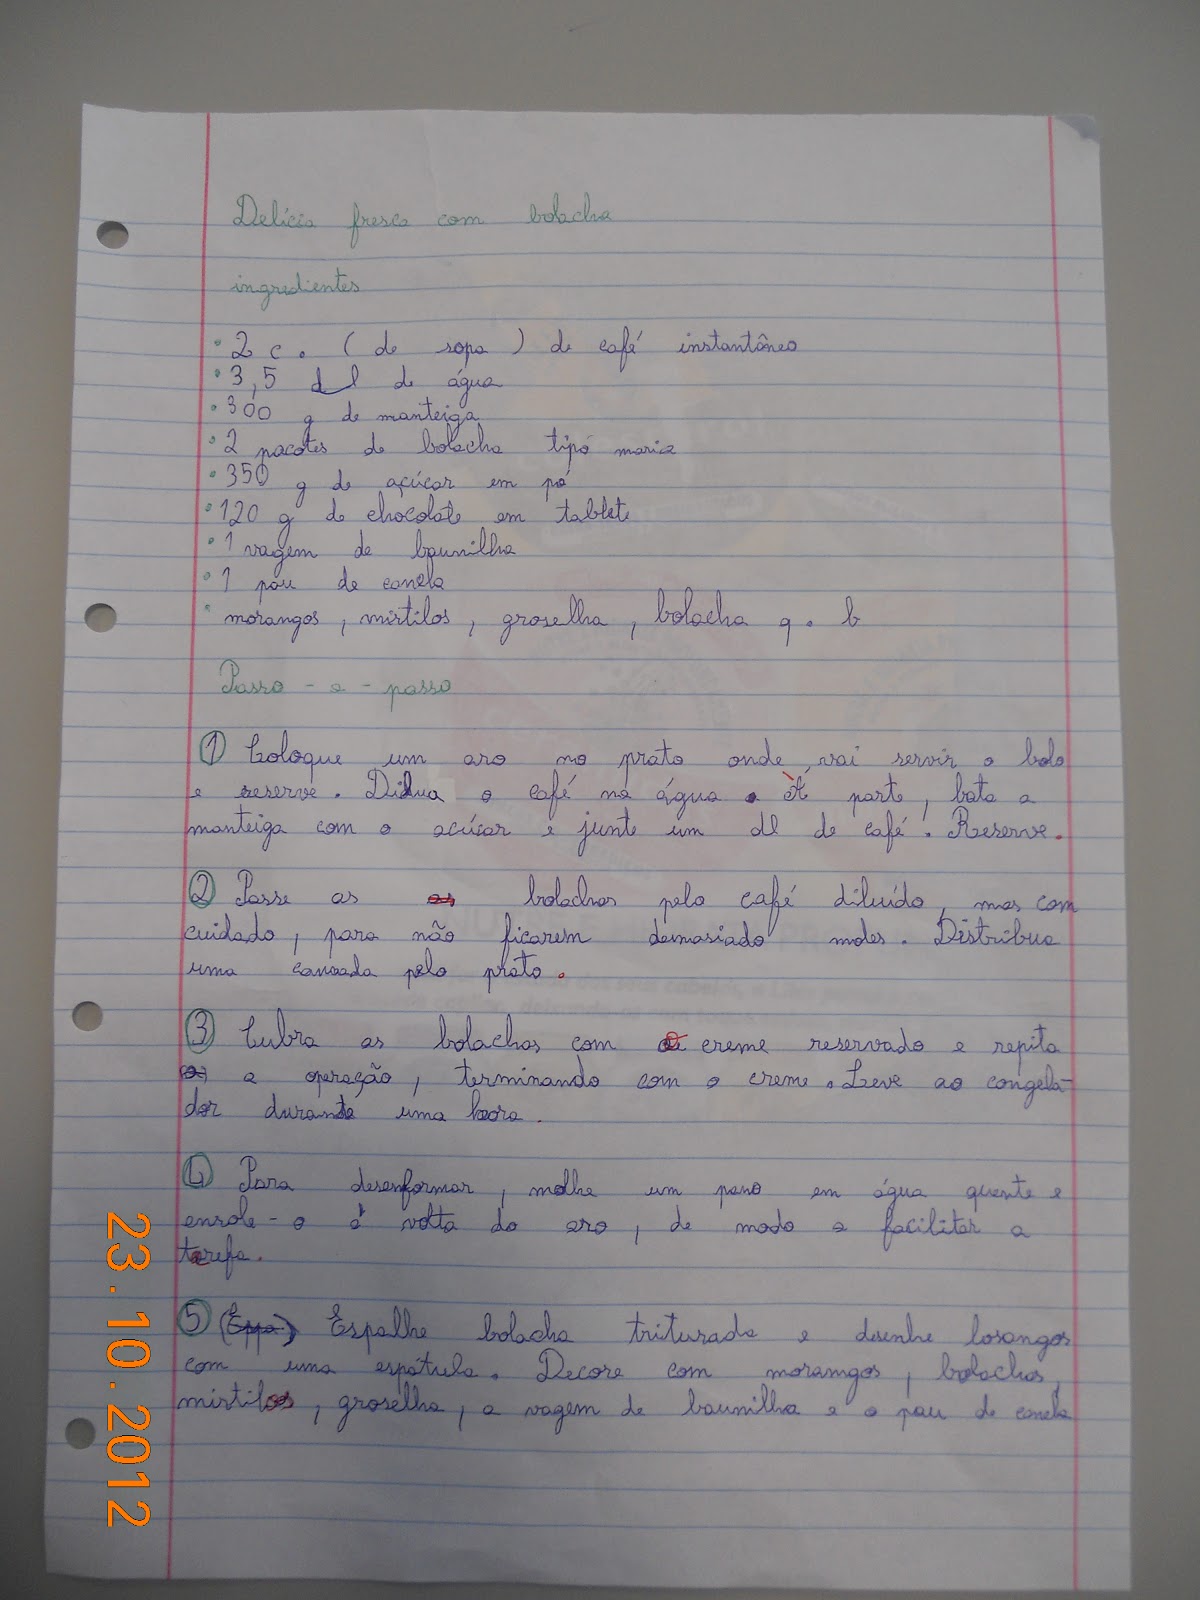 Delícia fresca com bolacha
ingredientes
• 2 c. (de sopa) de café instantâneo
• 3,5 dl de água
• 300 g de manteiga
• 2 pacotes de bolacha tipo maria
• 350 g de açúcar em pó
• 120 g de chocolate em tablete
• 1 vagem de baunilha
• 1 pau de canela
• morangos, mirtilos, groselha, bolacha q. b
Passo-a-passo
1 Coloque um aro no prato onde vai servir o bolo
e reserve. Dilua o café na água. À parte, bata a
manteiga com o açúcar e junte um dl de café. Reserve.
2 Passe as bolachas pelo café diluído, mas com
cuidado, para não ficarem demasiado moles. Distribua
uma camada pelo prato.
3 Cubra as bolachas com creme reservado e repita
a operação, terminando com o creme. Leve ao congela-
dor durante uma hora.
4 Para desenformar, molhe um pano em água quente e
enrole-o à volta do aro, de modo a facilitar a
tarefa.
5 Espalhe bolacha triturada e desenhe losangos
com uma espátula. Decore com morangos, bolachas,
mirtilos, groselha, a vagem de baunilha e o pau de canela
23.10.2012